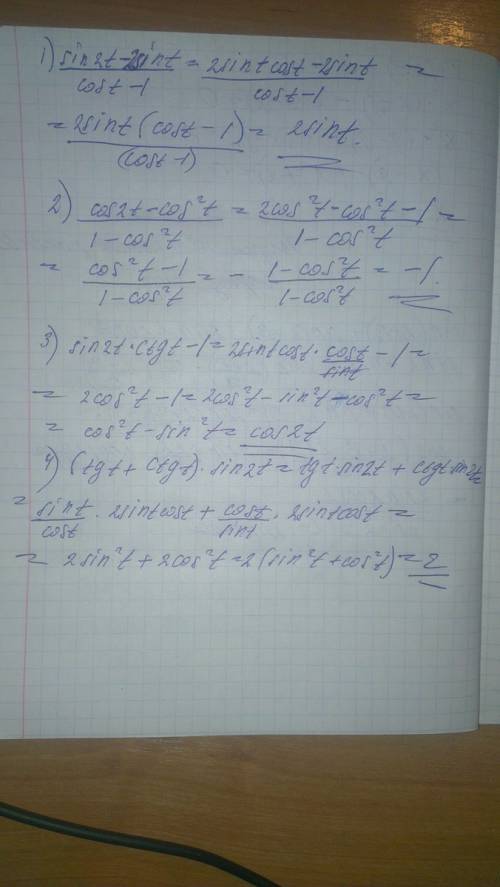 1) (sin2t-2sint)/(cost-1) = (2sintcost-2sint)/(cost-1) =
= (2sint(cost-1))/(cost-1) = 2sint.
2) (cos2t-cos²t)/(1-cos²t) = (2cos²t-cos²t-1)/(1-cos²t) =
= (cos²t-1)/(1-cos²t) = - (1-cos²t)/(1-cos²t) = -1.
3) sin2t·ctgt-1=2sintcost·cost/sint-1=
= 2cos²t-1=2cos²t-sin²t-cos²t=
= cos²t-sin²t=cos2t
4) (tgt+ctgt)·sin2t=tgt·sin2t+ctgtsin2t=
= sint/cost·2sintcost+cost/sint·2sintcost=
= 2sin²t+2cos²t=2(sin²t+cos²t)=2